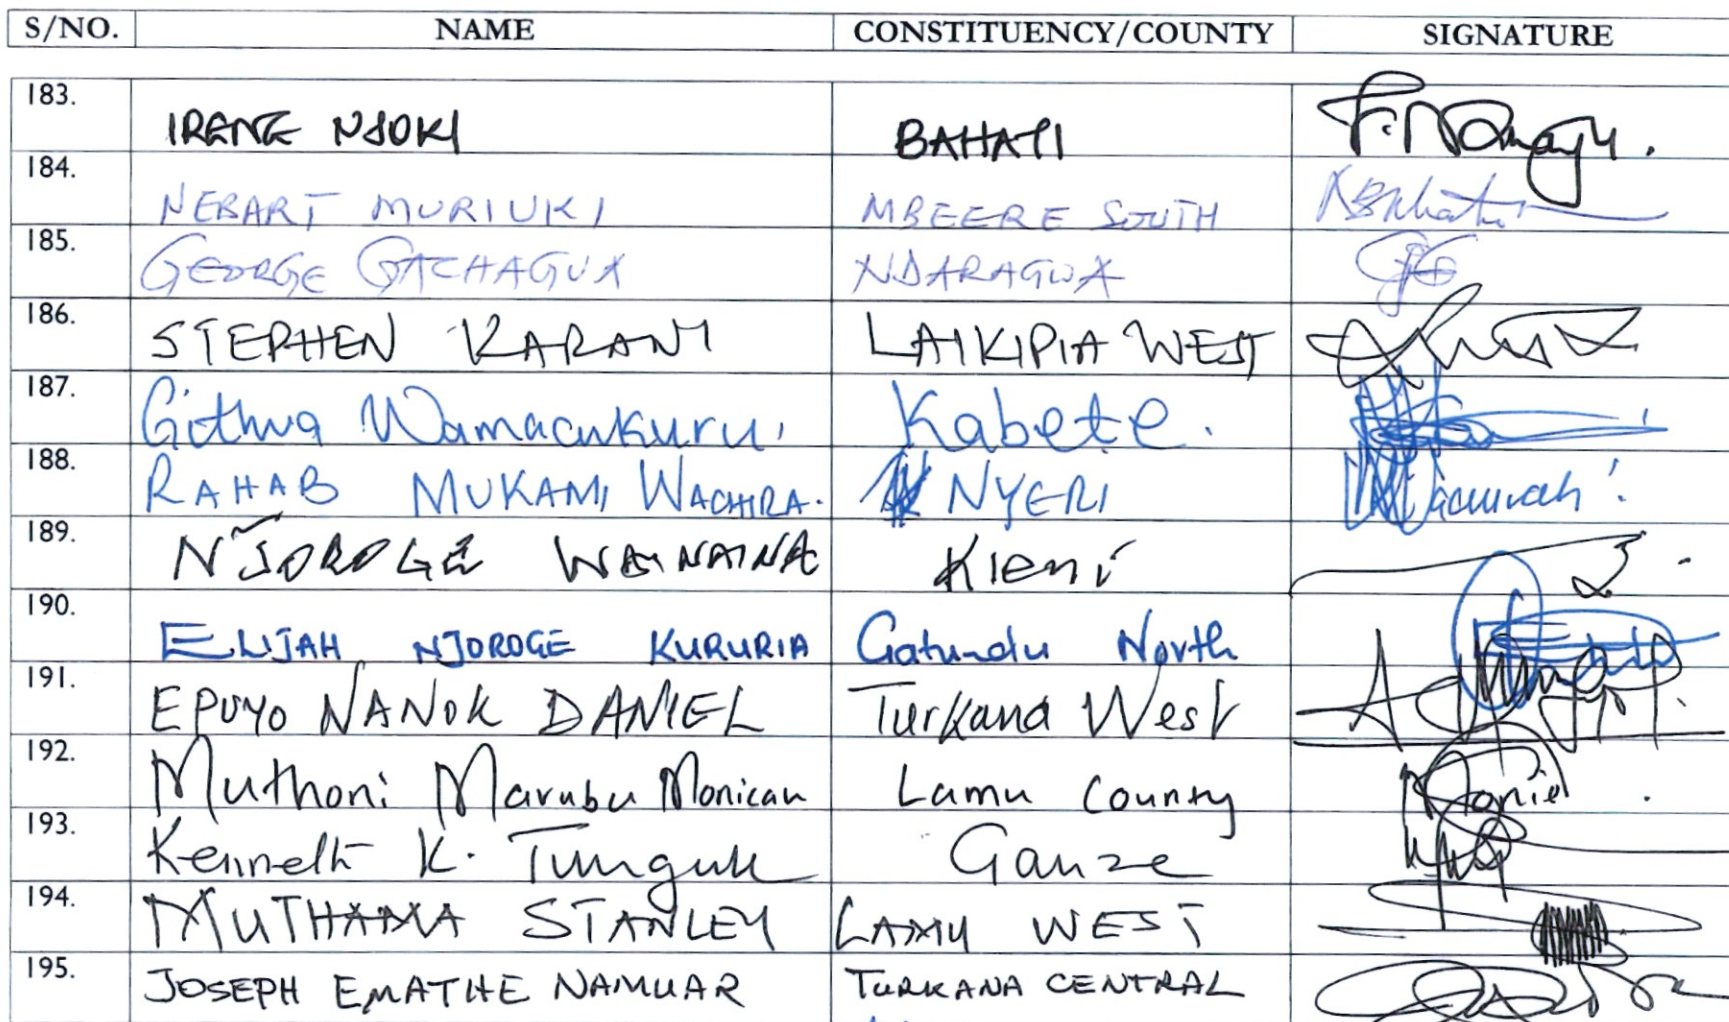 S/NO. NAME CONSTITUENCY/COUNTY SIGNATURE
183. IRENE NJOKI BAHATI
184. NEBART MURIUKI MBEERE SOUTH
185. GEORGE GACHAGUA NDARAGWA
186. STEPHEN KARANI LAIKIPIA WEST
187. Githua Wamacukuru, Kabete.
188. RAHAB MUKAMI WACHIRA. NYERI
189. NJOROGE WAINAINA Kieni
190. ELIJAH NJOROGE KURURIA Gatundu North
191. EPUYO NANOK DANIEL Turkana West
192. Muthoni Marubu Monicah Lamu County
193. Kenneth K. Tungule Ganze
194. MUTHAMA STANLEY LAMU WEST
195. JOSEPH EMATHE NAMUAR TURKANA CENTRAL